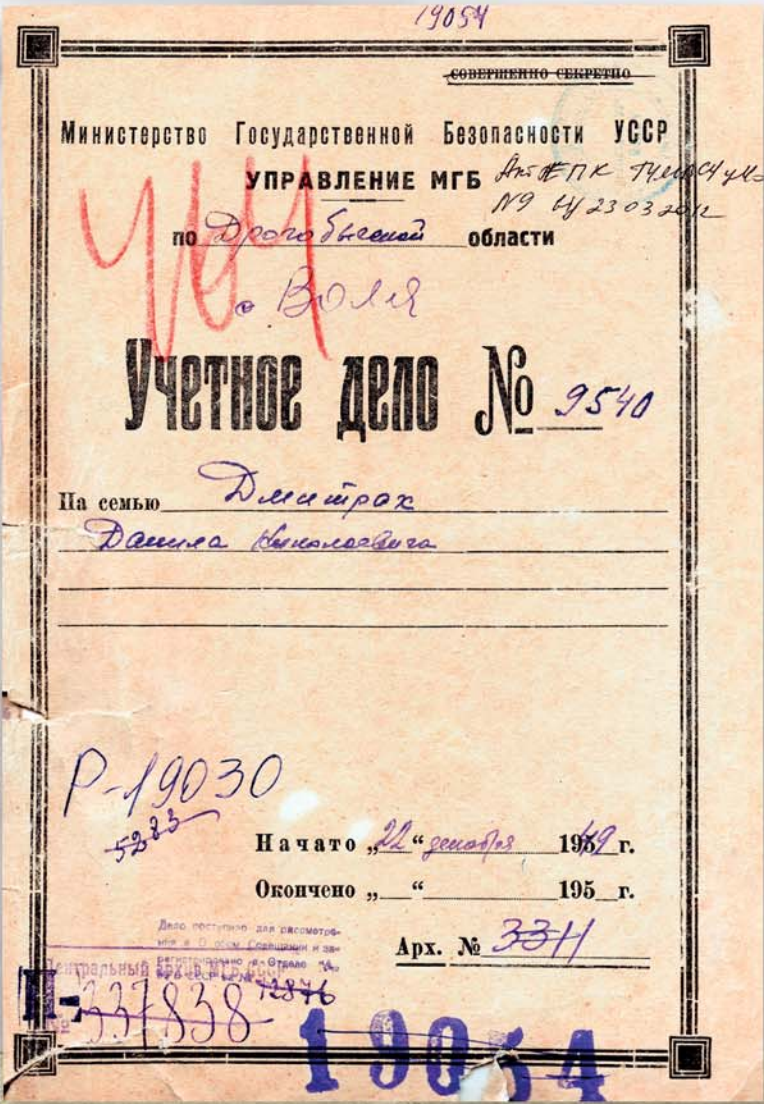 19054
СОВЕРШЕННО СЕКРЕТНО
Министерство Государственной Безопасности УССР
УПРАВЛЕНИЕ МГБ
№9 от 23 03 2012
по Дрогобычской области
с Воля
Учетное дело № 9540
На семью Дмитрах
Данила Николаевича
Р-19030
5283
Начато „22“ декабря 1949 г.
Окончено „ “ 195 г.
Дело поступило для рассмотре-
ния в О обом Совещании и за-
регистрировано в Отделе "А"
12876
Арх. № 3311
Центральный архив МГБ СССР
П-337838
№
19054